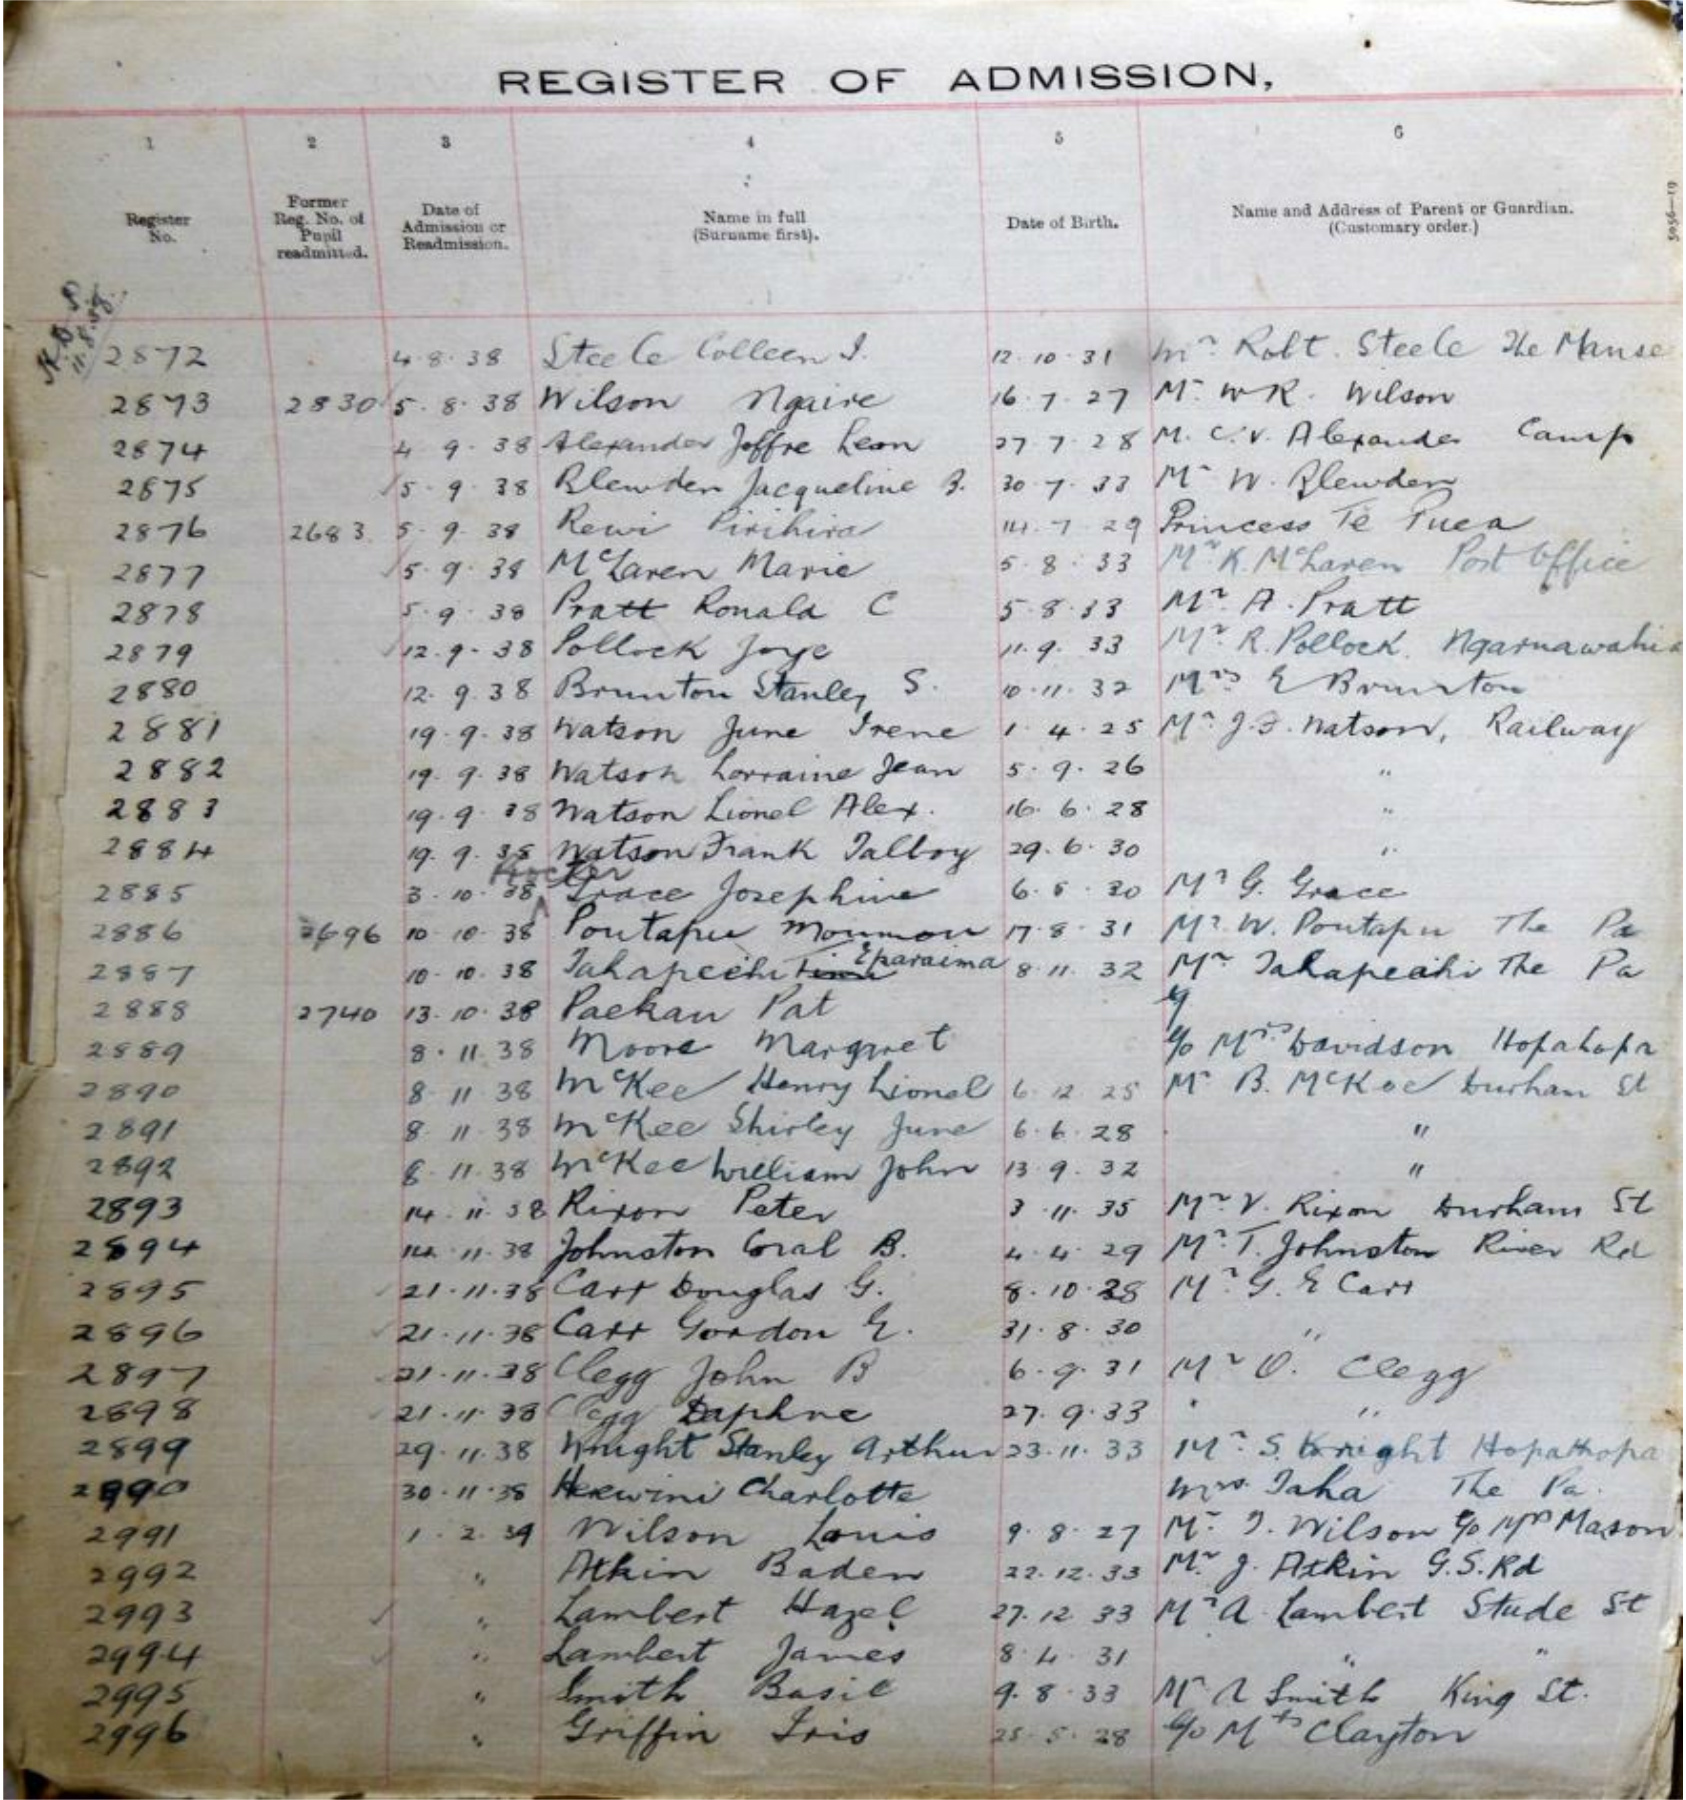 REGISTER OF ADMISSION,
1 2 3 4 5 6
Register No. Former Reg. No. of Pupil readmitted. Date of Admission or Readmission. Name in full (Surname first). Date of Birth. Name and Address of Parent or Guardian. (Customary order.)
5056—19
11.8.38
2872 4.8.38 Steele Colleen I. 12.10.31 Mr. Robt. Steele The Manse
2873 2830 5.8.38 Wilson Ngaire 16.7.27 Mr. W R. Wilson
2874 4 9.38 Alexander Joffre Leon 27 7.28 M. C.V. Alexander Camp
2875 5.9.38 Blewden Jacqueline B. 30.7.33 Mr W. Blewden
2876 2683 5.9.38 Rewi Pirihira 14.7 29 Princess Te Puea
2877 5.9.38 McLaren Marie 5.8.33 Mr K. McLaren Post Office
2878 5.9.38 Pratt Ronald C 5.8.33 Mr. A. Pratt
2879 12.9.38 Pollock Joye 11.9.33 Mr. R. Pollock. Ngaruawahia
2880 12.9.38 Brunton Stanley S. 10.11.32 Mrs E Brunton
2881 19.9.38 Watson June Irene 1.4.25 Mr. J.F. Watson, Railway
2882 19.9.38 Watson Lorraine Jean 5.9.26 "
2883 19.9.38 Watson Lionel Alex. 16.6.28 "
2884 19.9.38 Watson Frank Talboy 29.6.30 "
2885 3.10.38 Grace Josephine 6.5.30 Mr G. Grace
2886 2696 10.10.38 Poutapu Moumou 17.8.31 Mr. W. Poutapu The Pa
Eparaima
2887 10.10.38 Tahapeehi Tima 8.11.32 Mr Tahapeehi The Pa
2888 2740 13.10.38 Paekau Pat
2889 8.11.38 Moore Margaret c/o Mrs Davidson Hopahopa
2890 8.11.38 McKee Henry Lionel 6.12.25 Mr B. McKee Durham St
2891 8.11.38 McKee Shirley June 6.6.28 "
2892 8.11.38 McKee William John 13.9.32 "
2893 14.11.38 Rixon Peter 3.11.35 Mr V. Rixon Durham St
2894 14.11.38 Johnston Coral B. 4.4.29 Mr. T. Johnston River Rd
2895 21.11.38 Carr Douglas G. 8.10.28 Mr G. E Carr
2896 21.11.38 Carr Gordon E. 31.8.30 "
2897 21.11.38 Clegg John B 6.9.31 Mr O. Clegg
2898 21.11.38 Clegg Daphne 27.9.33 "
2899 29.11.38 Knight Stanley Arthur 23.11.33 Mr. S. Knight Hopahopa
2990 30.11.38 Herewini Charlotte Mrs. Taha The Pa.
2991 1.2.39 Wilson Louis 9.8.27 Mr. J. Wilson c/o Mrs Mason
2992 " Atkin Baden 22.12.33 Mr J. Atkin G.S. Rd
2993 " Lambert Hazel 27.12 33 Mr A. Lambert Stude St
2994 " Lambert James 8.4.31 " "
2995 " Smith Basil 9.8.33 Mr A Smith King St.
2996 " Griffin Iris 25.5.28 c/o Mrs Clayton